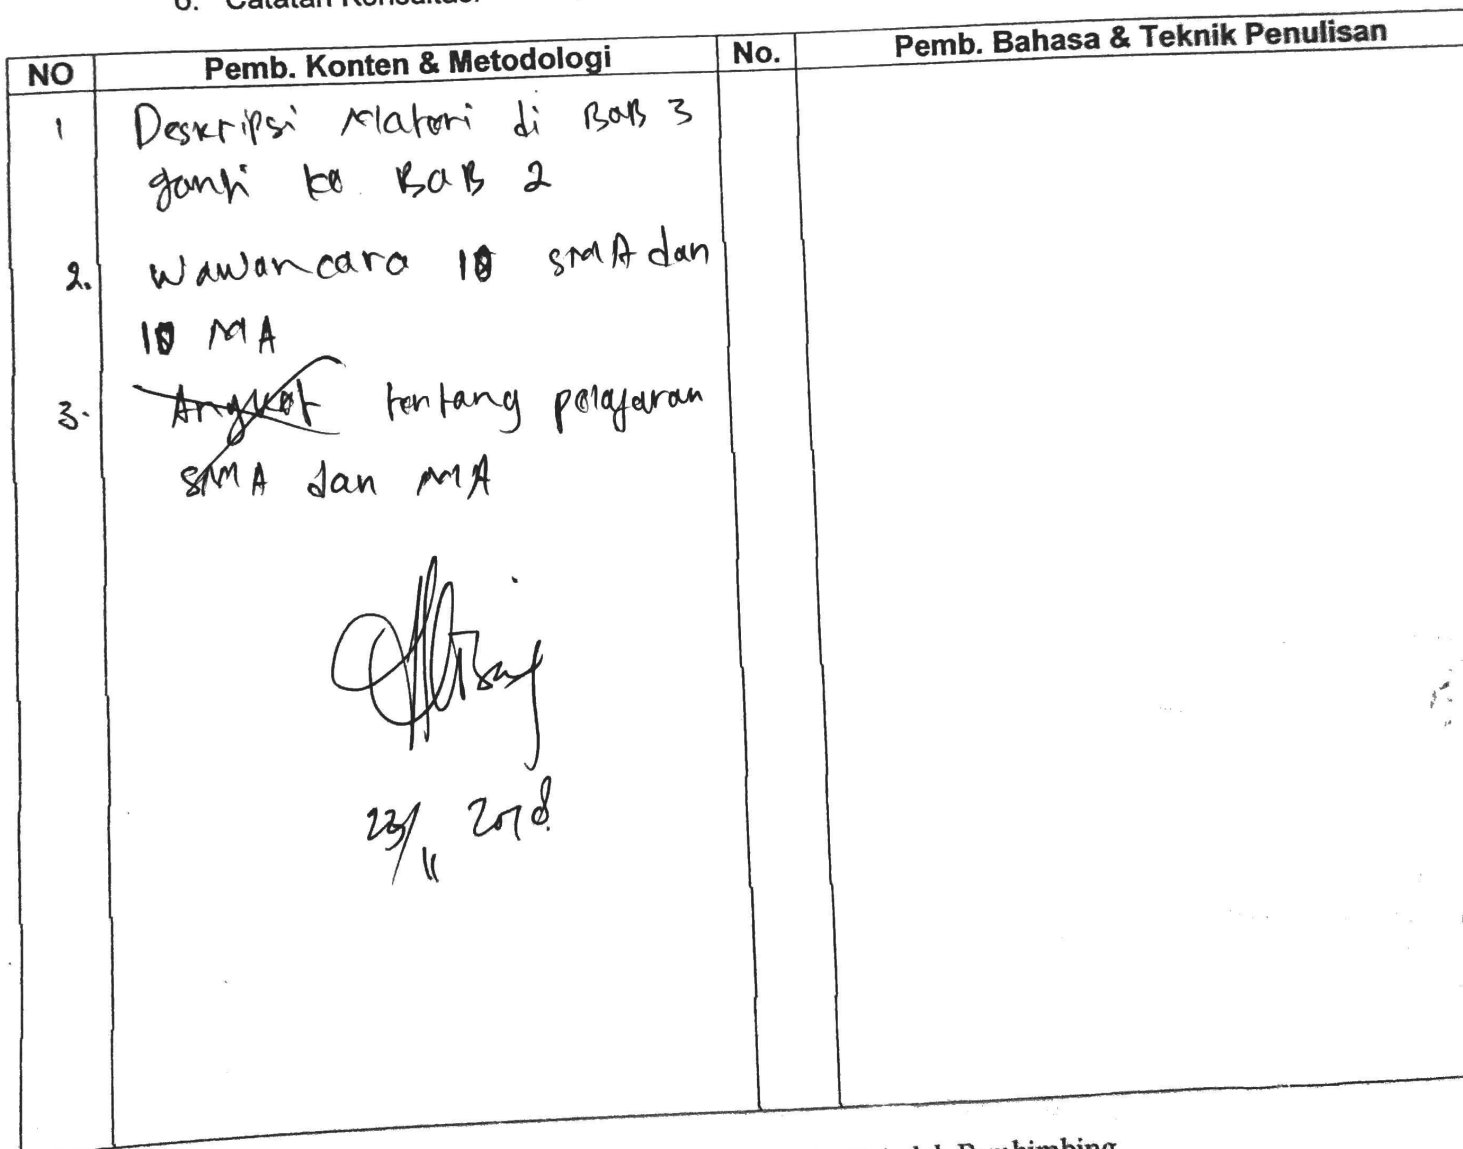 6. Catatan Konsultasi
NO Pemb. Konten & Metodologi No. Pemb. Bahasa & Teknik Penulisan
1 Deskripsi Materi di BAB 3
ganti ke BAB 2
2. Wawancara 10 SMA dan
10 MA
3. Angket tentang pelajaran
SMA dan MA
23/11 2018